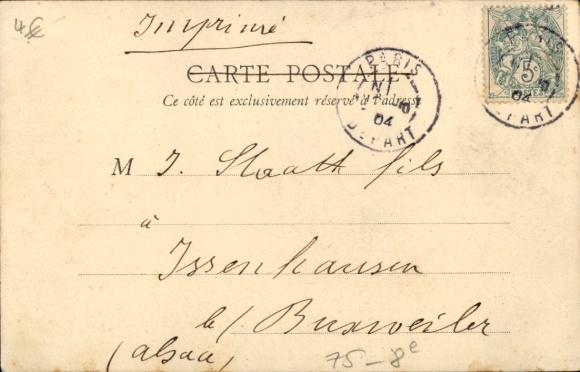 4€
Imprimé
CARTE POSTALE
Ce côté est exclusivement réservé à l'adresse
PARIS
04
DEPART
5
POSTES
04
PART
M J. Staath fils
à
Issenhausen
b/ Buxweiler
(alsace)
75-8e